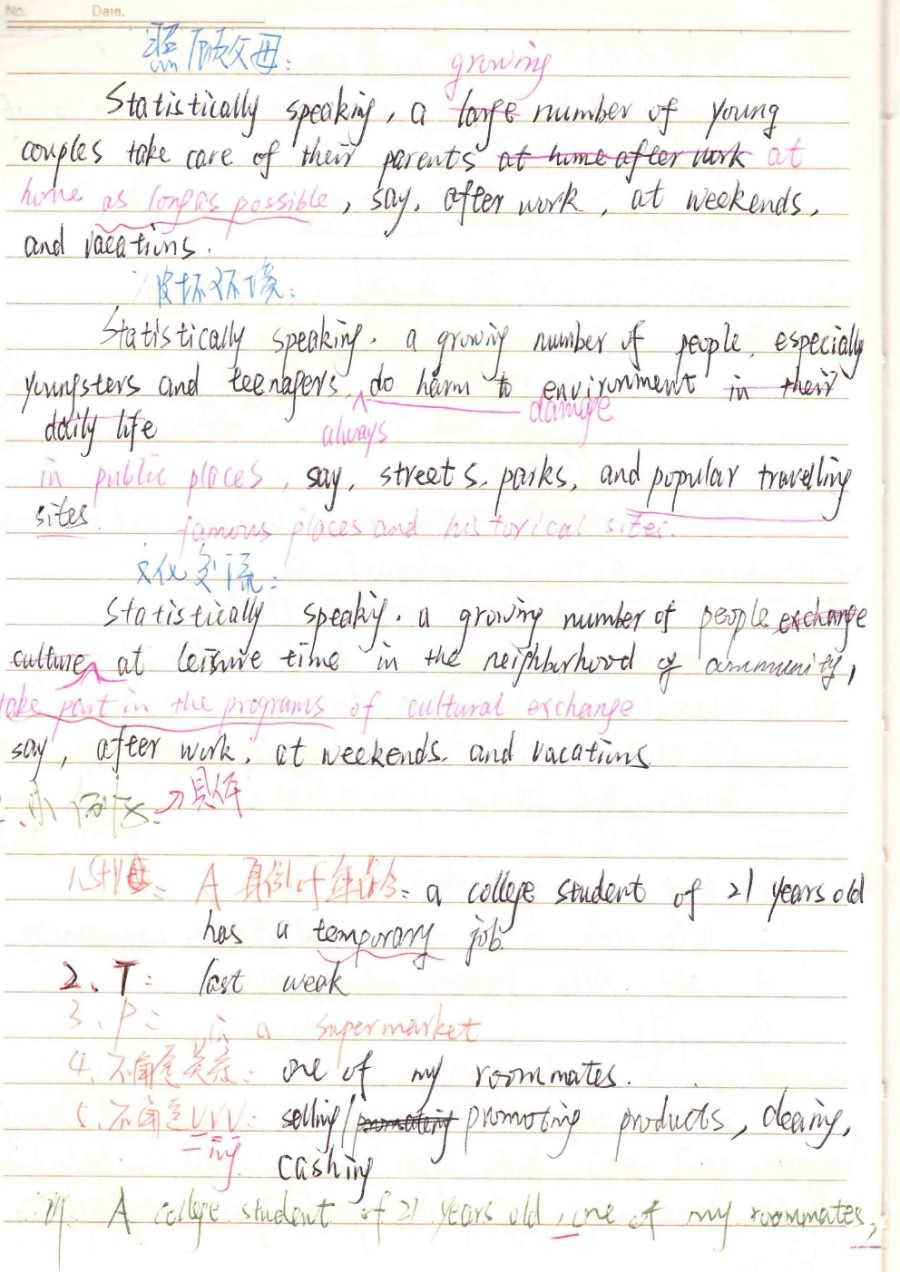 No. Date.
照顾父母:
growing
Statistically speaking, a large number of young
couples take care of their parents at home after work at
home as long as possible, say, after work, at weekends,
and vacations.
破坏环境:
Statistically speaking, a growing number of people, especially
youngsters and teenagers, do harm to environment in their
damage
daily life
always
in public places, say, streets, parks, and popular travelling
sites. famous places and historical sites.
文化交流:
Statistically speaking, a growing number of people exchange
culture at leisure time in the neighborhood of community,
take part in the programs of cultural exchange
say, after work, at weekends, and vacations
具体
A 身份+年龄: a college student of 21 years old
has a temporary job.
2、T: last weak
3、P: in a supermarket
4、不确定关系: one of my roommates.
5、不确定VVV: selling/promoting promoting products, cleaing,
-ing cashing
例 A college student of 21 years old, one of my roommates,